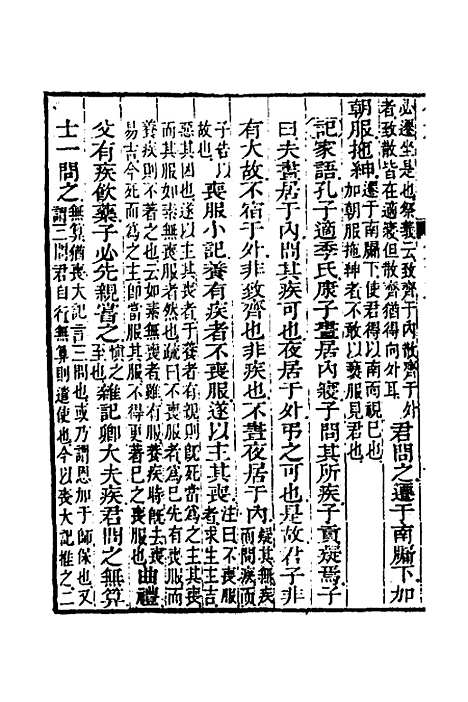 必遷坐是也祭義云致齊于内散齊于外
者致散皆在適寢但散齊猶得向外耳
君問之遷于南牖下加
朝服拖紳
遷于南牖下使君得以南面視已也
加朝服拖紳者不敢以褻服見君也
記家語孔子適季氏康子晝居内寢子問其所疾子貢疑焉子
曰夫晝居于内問其疾可也夜居于外弔之可也是故君子非
有大故不宿于外非致齊也非疾也不晝夜居于内
疑其無疾
而問疾而
子告以
故也
喪服小記養有疾者不喪服遂以主其喪
注曰不喪服
者求生主吉
惡其凶也遂以主其喪者于養者有親則當爲之主其喪
而其服如素無喪服者然也疏曰不喪服者爲已先有喪服而
養疾則不著之也云如素無喪者雖有服養疾時既去喪服
易吉今死而爲之主師當服其服不得更著已之喪服也
曲禮
父有疾飲藥子必先親嘗之
慎之
至也
雜記卿大夫疾君問之無算
士一問之
無算猶喪大記言三問也或乃謂恩加于師保也又
謂三問君自行無算則遣使也今以喪大記推之二